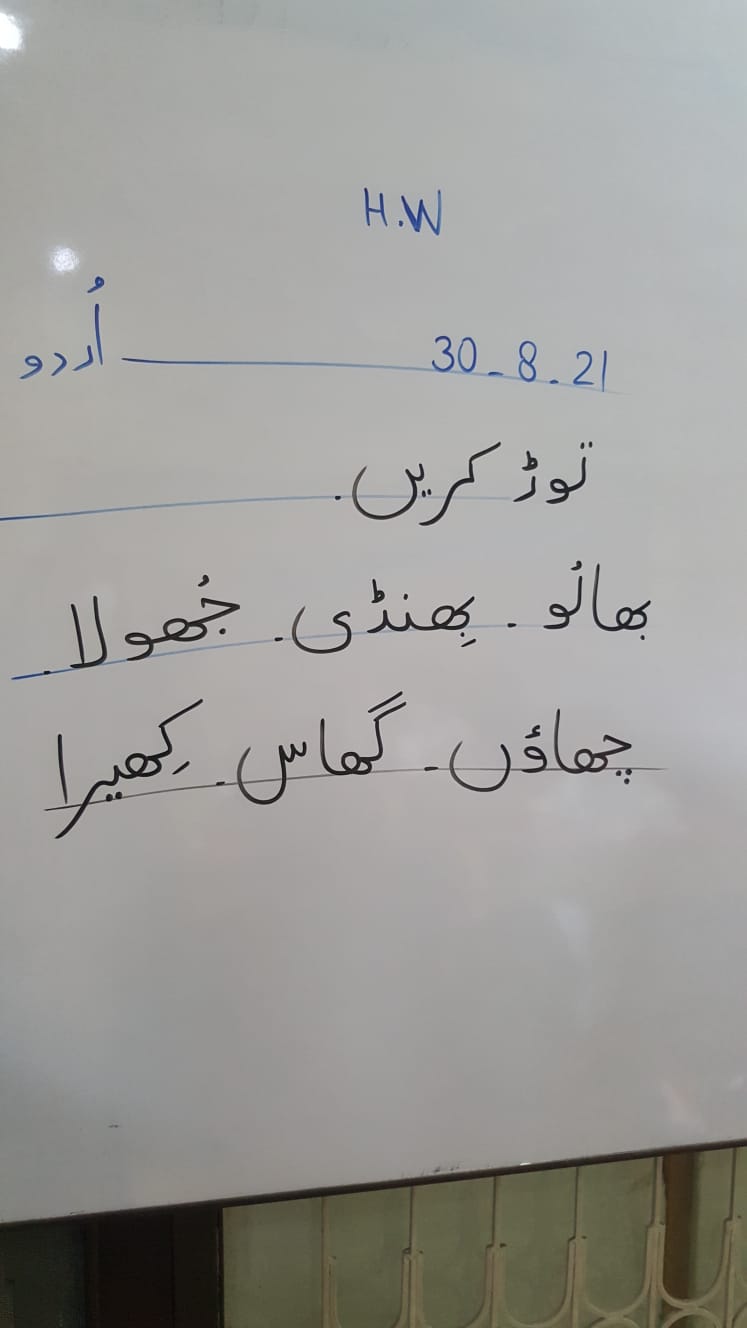 H.W
30-8-21 اُردو
توڑ کریں.
بھالُو . بِھنڈی . جُھولا .
چھاؤں . گھاس . کِھیرا